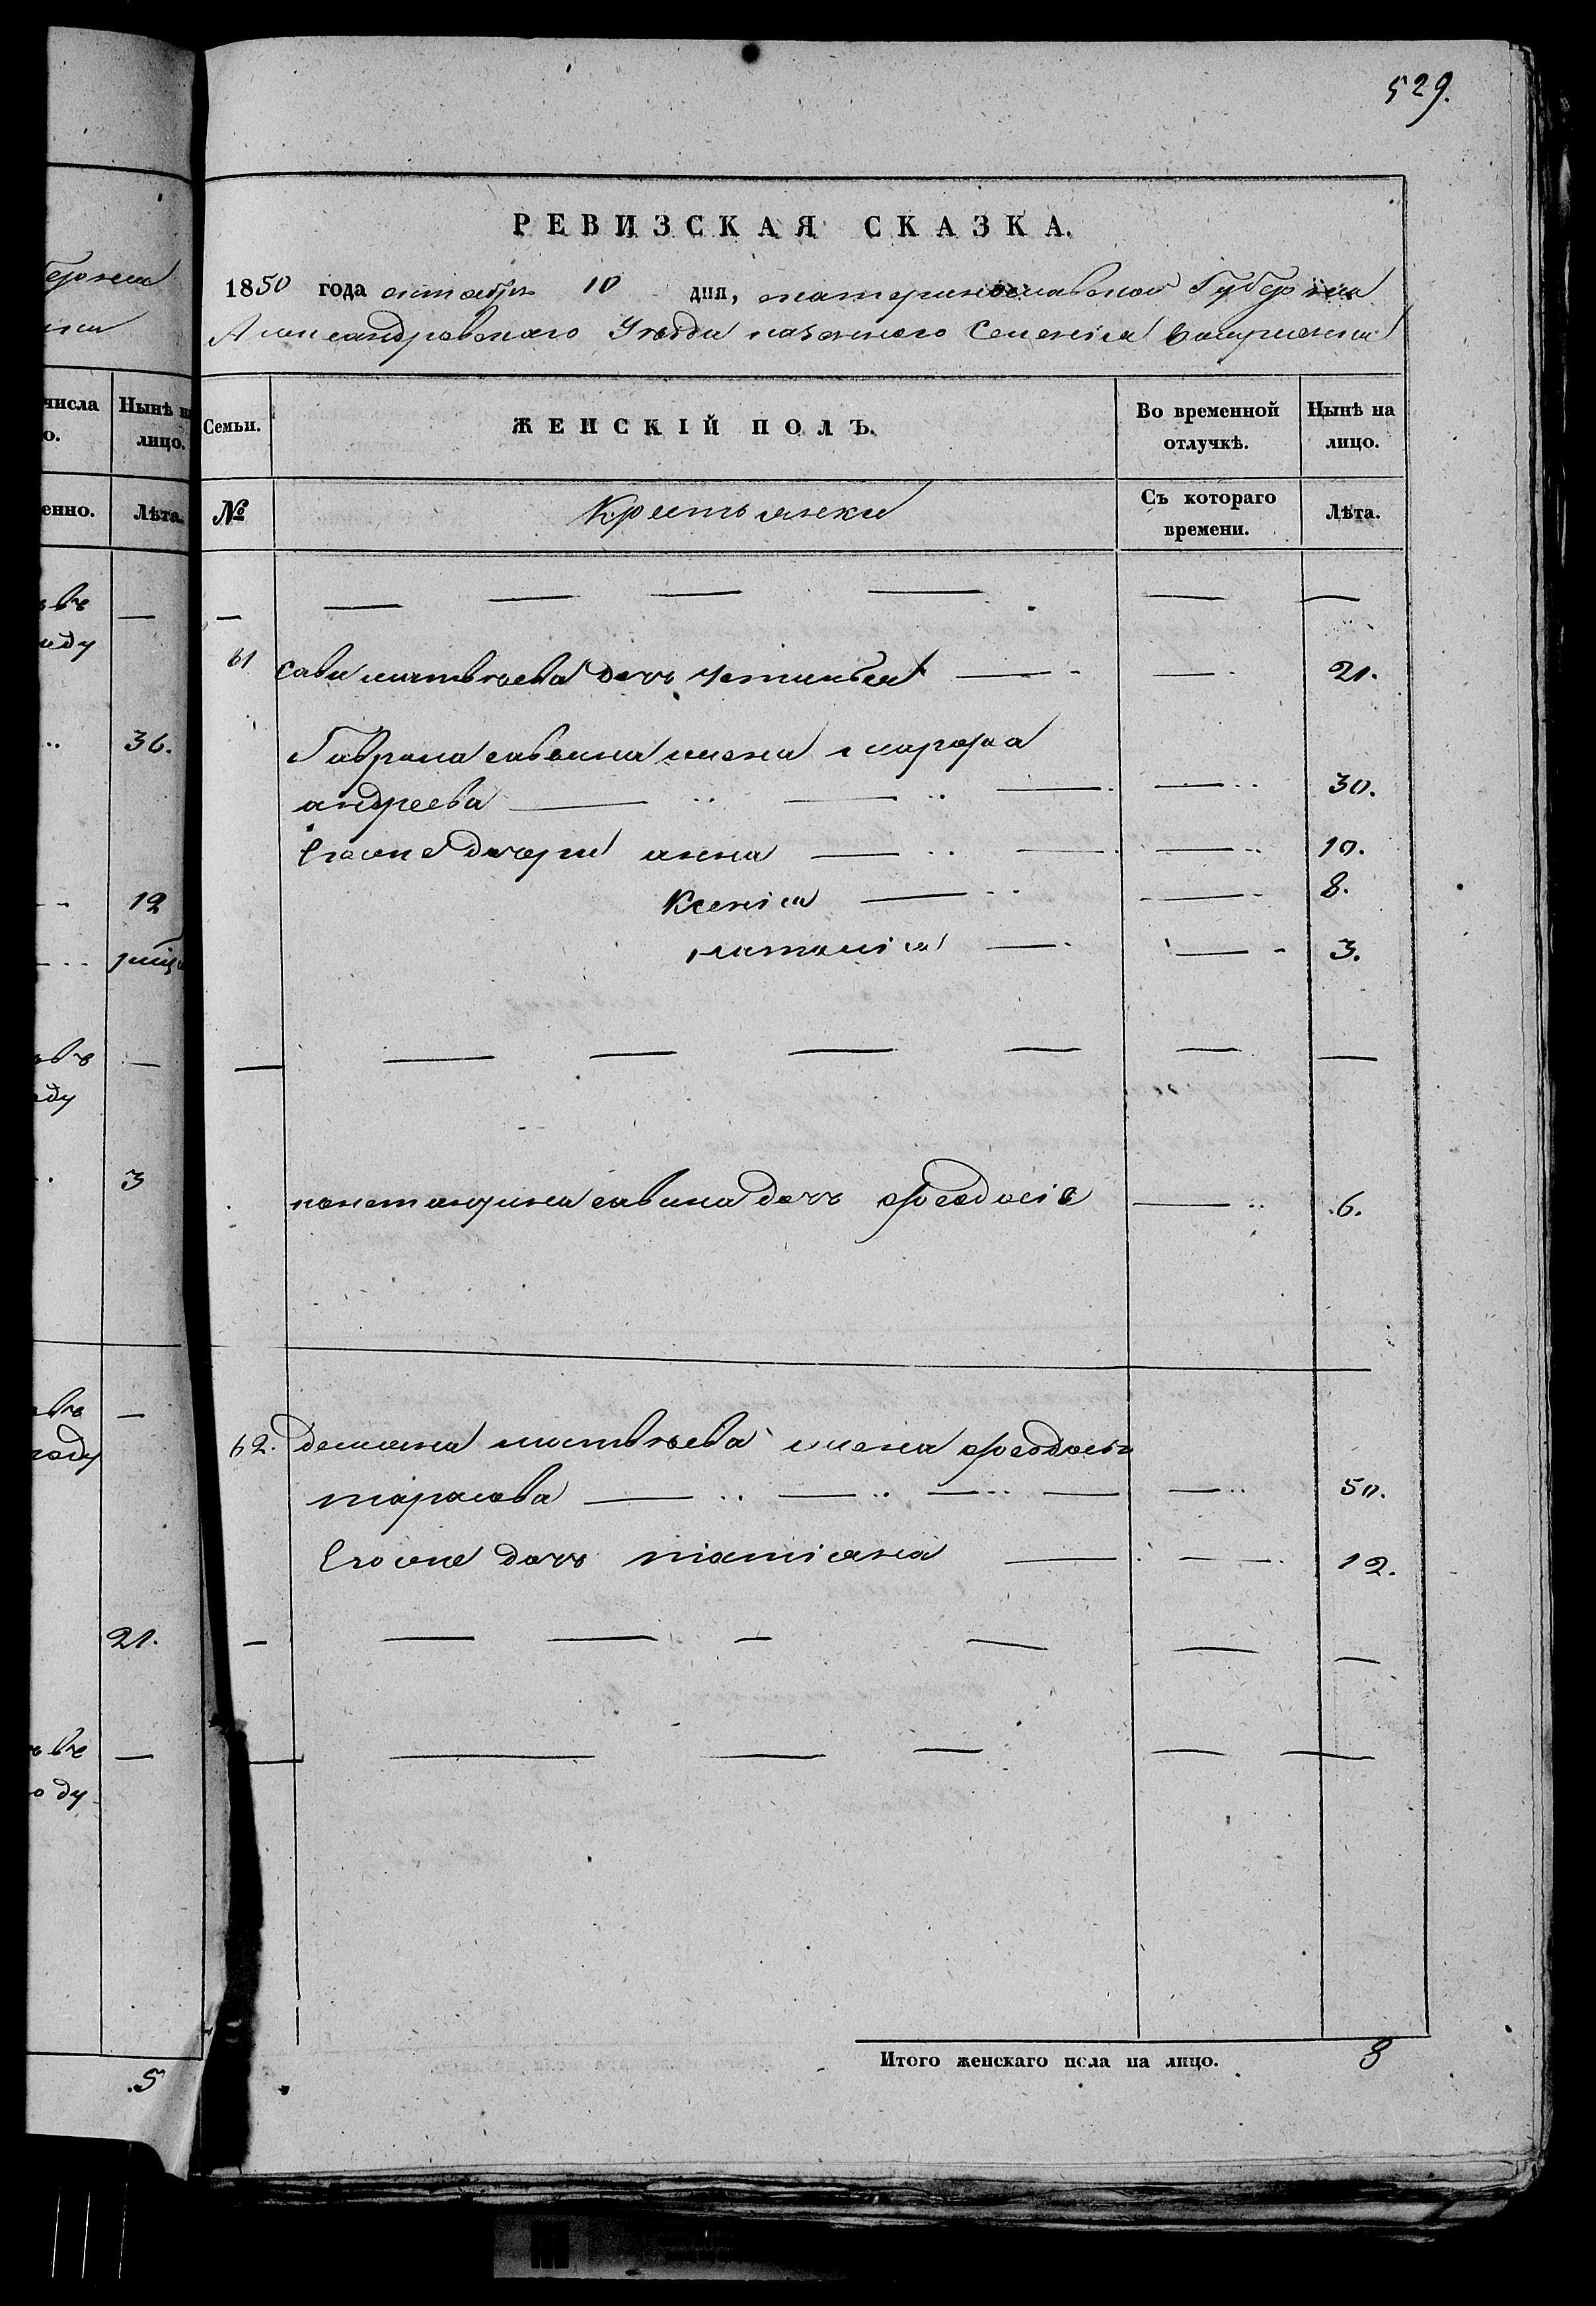 529.
РЕВИЗСКАЯ СКАЗКА.
1850 года октября 10 дня, екатеринославской Губернии
Александровскаго Уезда казеннаго Селенія
Семьи. ЖЕНСКІЙ ПОЛЪ. Во временной отлучкѣ. Нынѣ на лицо.
№ Крестьянки Съ котораго времени. Лѣта.
61 Савы матвѣева дочь Устинья 21.
Гаврила савина жена марфа
андреева 30.
Егоже дочери анна 10.
Ксенія 8.
наталія 3.
константина савина дочь феодосія 6.
62. демяна матвѣева жена феодосья
тарасова 50.
Егоже дочь татіана 12.
Итого женскаго пола на лицо. 8
числа
о.
Нынѣ на
лицо.
енно. Лѣта.
36.
12
3
21.
5